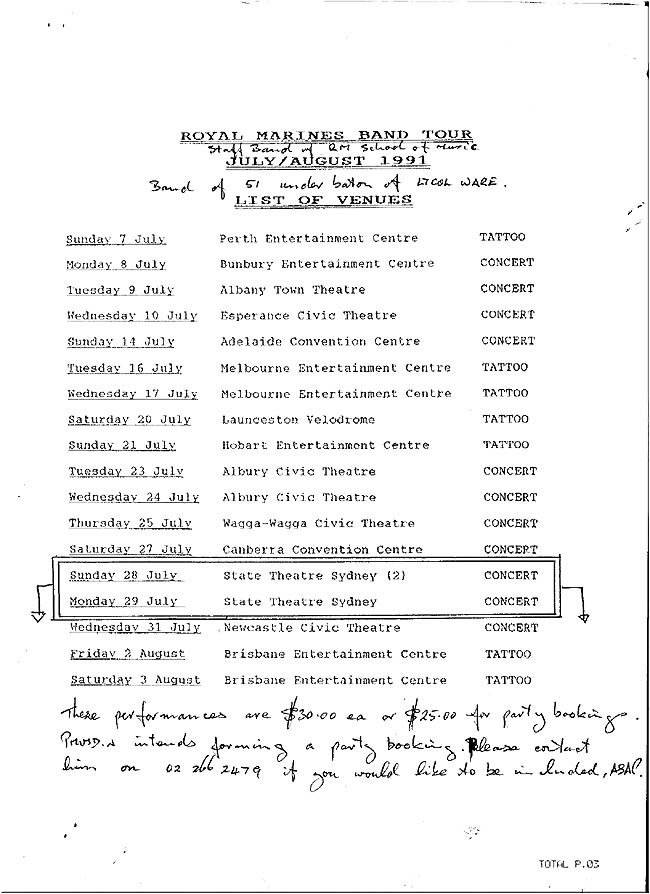 ROYAL MARINES BAND TOUR
Staff Band of RM School of Music
JULY/AUGUST 1991
Band of 51 under baton of LTCOL WARE.
LIST OF VENUES
Sunday 7 July Perth Entertainment Centre TATTOO
Monday 8 July Bunbury Entertainment Centre CONCERT
Tuesday 9 July Albany Town Theatre CONCERT
Wednesday 10 July Esperance Civic Theatre CONCERT
Sunday 14 July Adelaide Convention Centre CONCERT
Tuesday 16 July Melbourne Entertainment Centre TATTOO
Wednesday 17 July Melbourne Entertainment Centre TATTOO
Saturday 20 July Launceston Velodrome TATTOO
Sunday 21 July Hobart Entertainment Centre TATTOO
Tuesday 23 July Albury Civic Theatre CONCERT
Wednesday 24 July Albury Civic Theatre CONCERT
Thursday 25 July Wagga-Wagga Civic Theatre CONCERT
Saturday 27 July Canberra Convention Centre CONCERT
Sunday 28 July State Theatre Sydney (2) CONCERT
Monday 29 July State Theatre Sydney CONCERT
Wednesday 31 July Newcastle Civic Theatre CONCERT
Friday 2 August Brisbane Entertainment Centre TATTOO
Saturday 3 August Brisbane Entertainment Centre TATTOO
These performances are $30.00 ea or $25.00 for party bookings.
intends forming a party booking. Please contact
him on 02 266 2479 if you would like to be included, ASAP.
TOTAL P.03